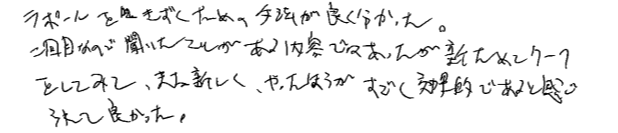 ラポールをきずくための手法が良く分かった。
二回目なので聞いたことがある内容ではあったが新ためてワーク
をしてみて、また新しく、やったほうがすごく効果的であると感じ
られて良かった。